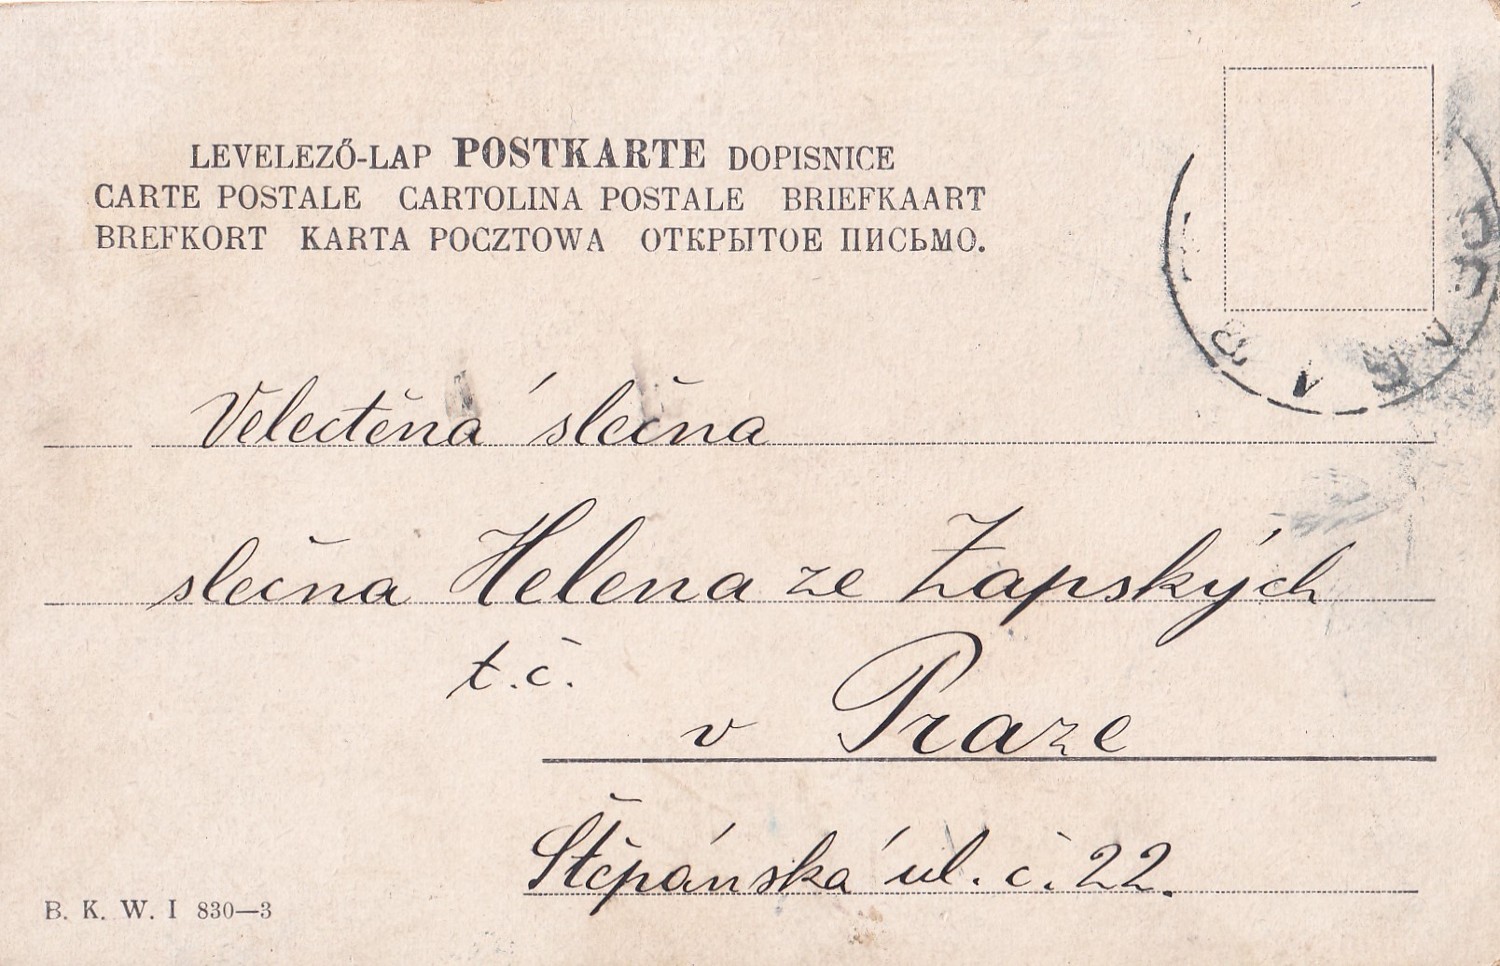 LEVELEZŐ-LAP POSTKARTE DOPISNICE
CARTE POSTALE CARTOLINA POSTALE BRIEFKAART
BREFKORT KARTA POCZTOWA ОТКРЫТОЕ ПИСЬМО.
Velectěná slečna
slečna Helena ze Zapských
t.č.
v Praze
Štěpánská ul. č. 22.
B. K. W. I 830—3